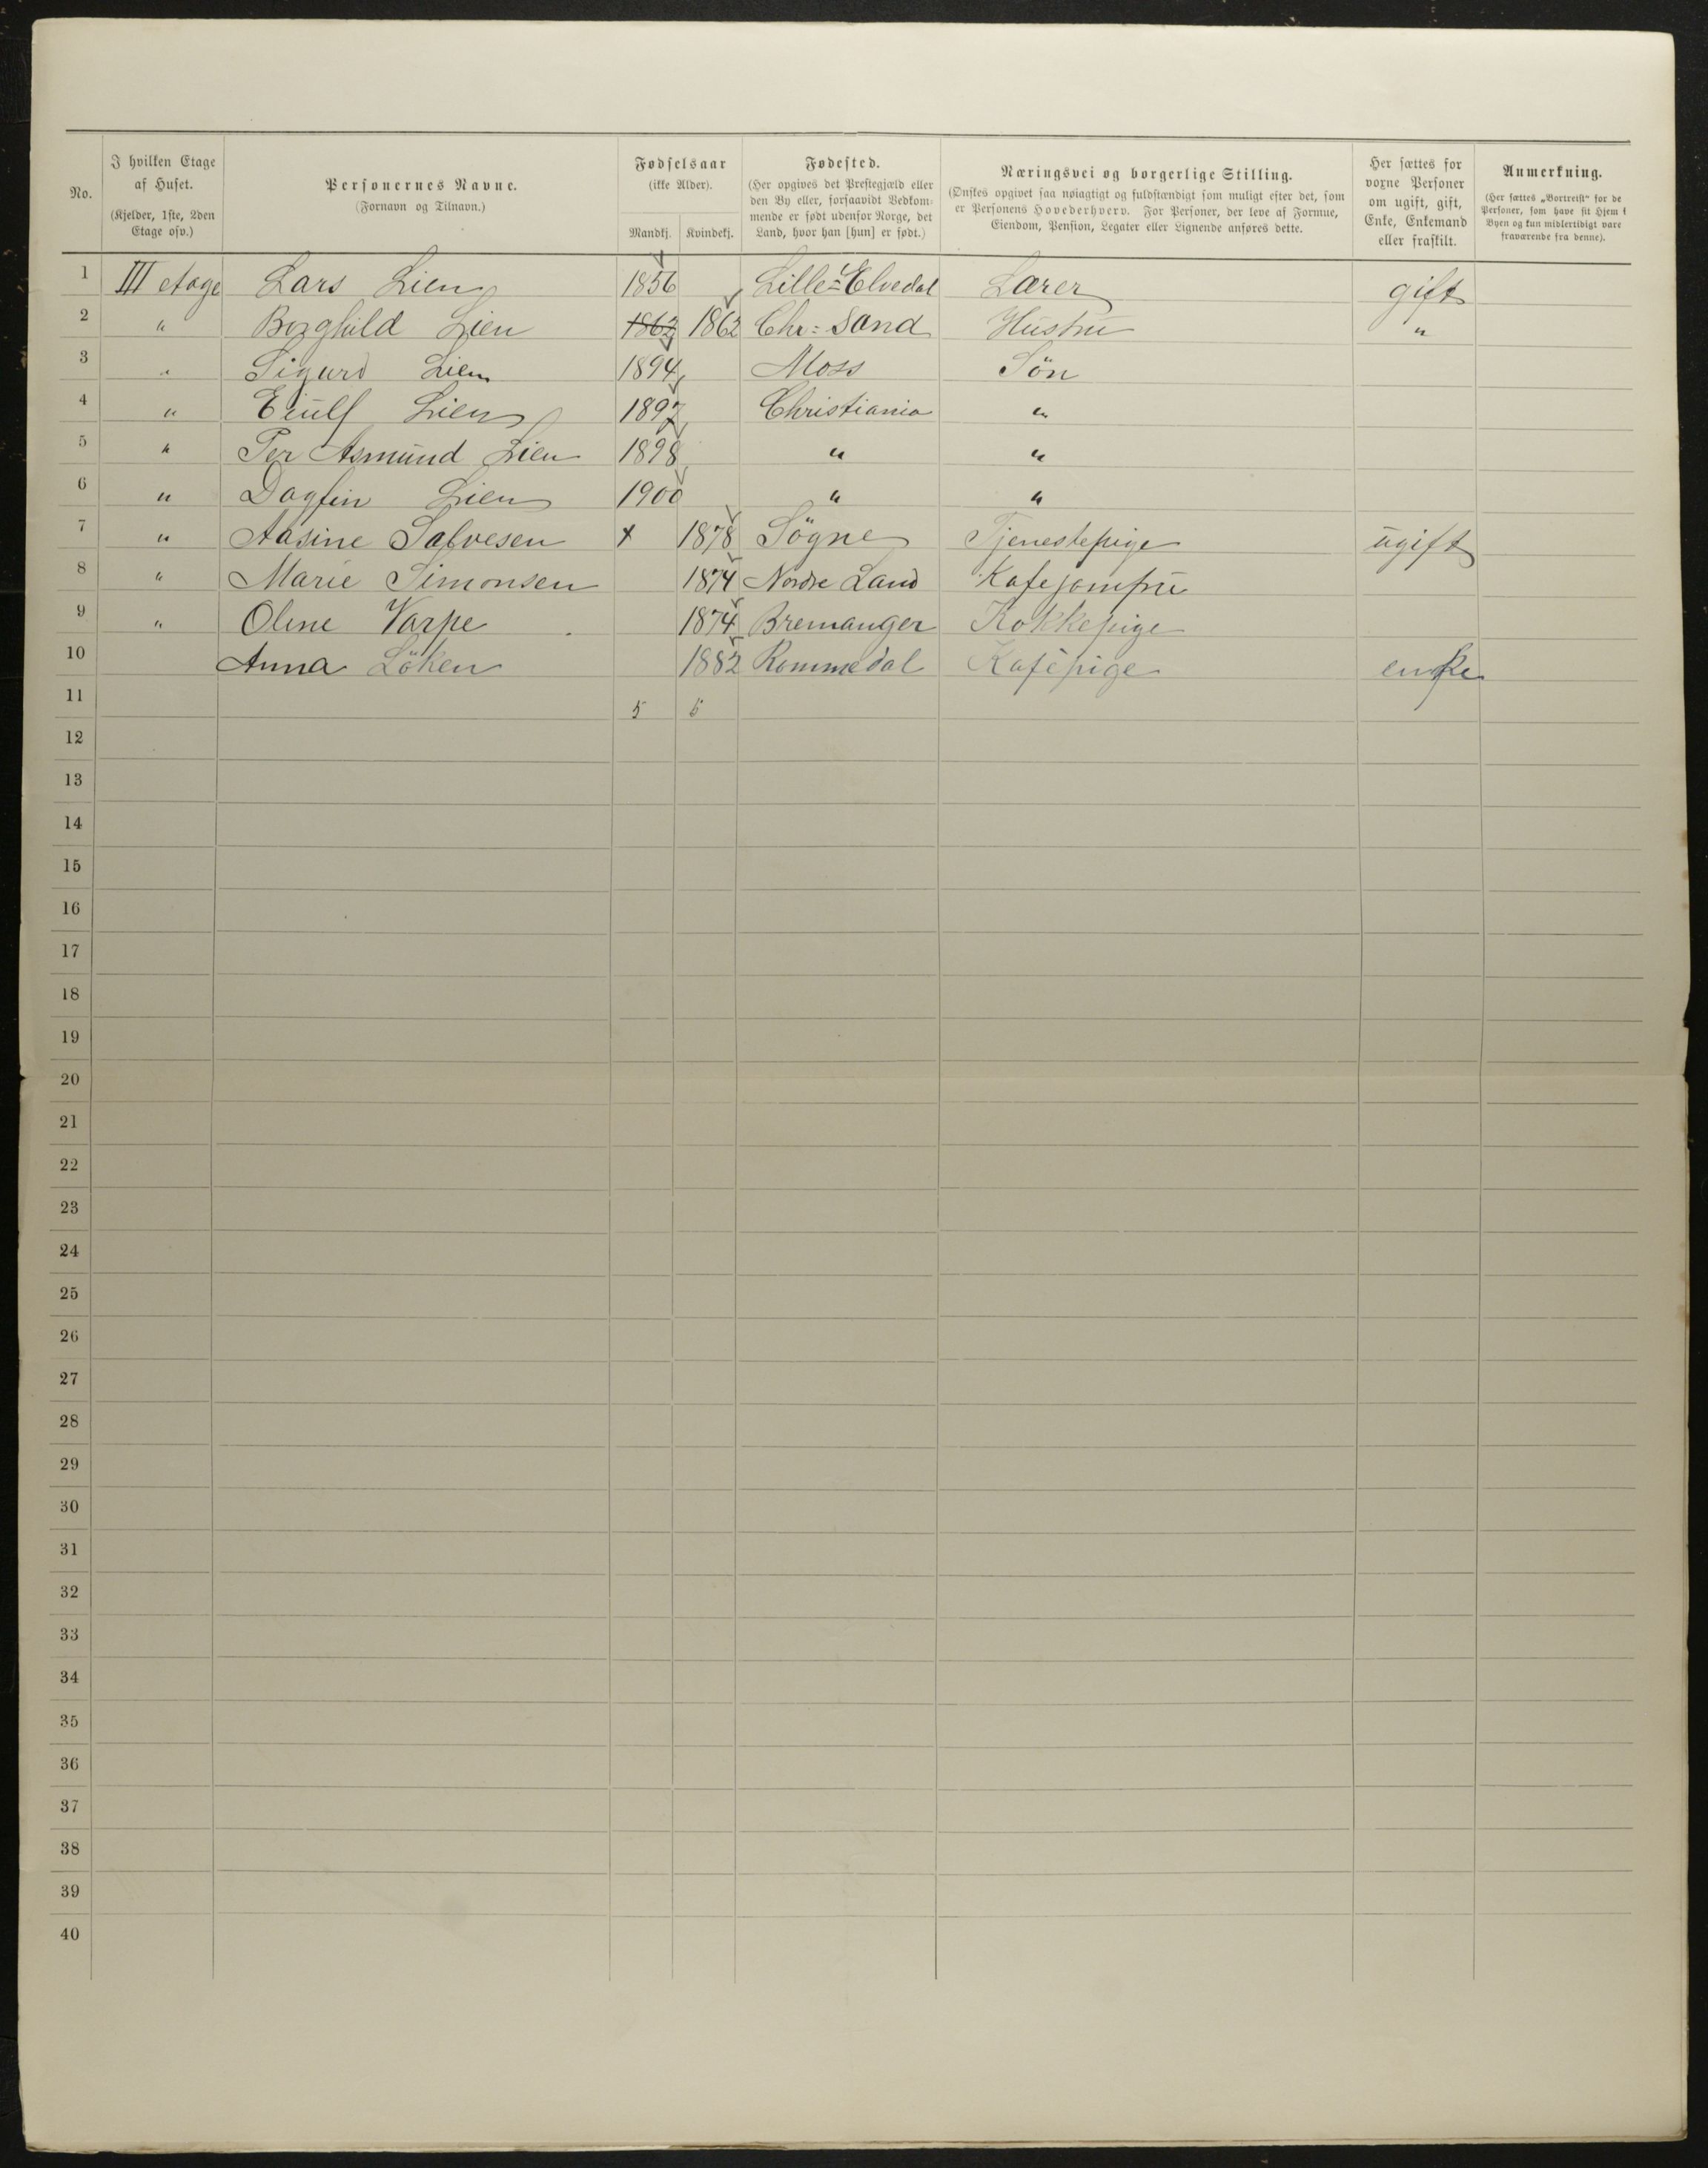 No.
I hvilken Etage af Huset. (Kjelder, 1ste, 2den Etage osv.)
Personernes Navne. (Fornavn og Tilnavn.)
Fødselsaar (ikke Alder). Mandkj. Kvindekj.
Fødested. (Her opgives det Prestegjæld eller den By eller, forsaavidt Vedkommende er født udenfor Norge, det Land, hvor han [hun] er født.)
Næringsvei og borgerlige Stilling. (Ønskes opgivet saa nøiagtigt og fuldstændigt som muligt efter det, som er Personens Hovederhverv. For Personer, der leve af Formue, Eiendom, Pension, Legater eller Lignende anføres dette.
Her sættes for voxne Personer om ugift, gift, Enke, Enkemand eller fraskilt.
Anmerkning. (Her sættes „Bortreist“ for de Personer, som have sit Hjem i Byen og kun midlertidigt vare fraværende fra denne).
1 III etage Lars Lien 1856 Lille-Elvedal Lærer gift
2 " Borghild Lien 1862 1862 Chr: Sand Hustru "
3 " Sigurd Lien 1894 Moss Sön
4 " Eiulf Lien 1897 Christiania "
5 " Per Asmund Lien 1898 " "
6 " Dagfin Lien 1900 " "
7 " Aasine Salvesen x 1878 Sögne Tjenestepige ugift
8 " Marie Simonsen 1874 Nordre Land Kafejomfru
9 " Oline Varpe 1874 Bremanger Kokkepige
10 Anna Löken 1882 Rommedal Kafépige enke
11 5 5
12
13
14
15
16
17
18
19
20
21
22
23
24
25
26
27
28
29
30
31
32
33
34
35
36
37
38
39
40